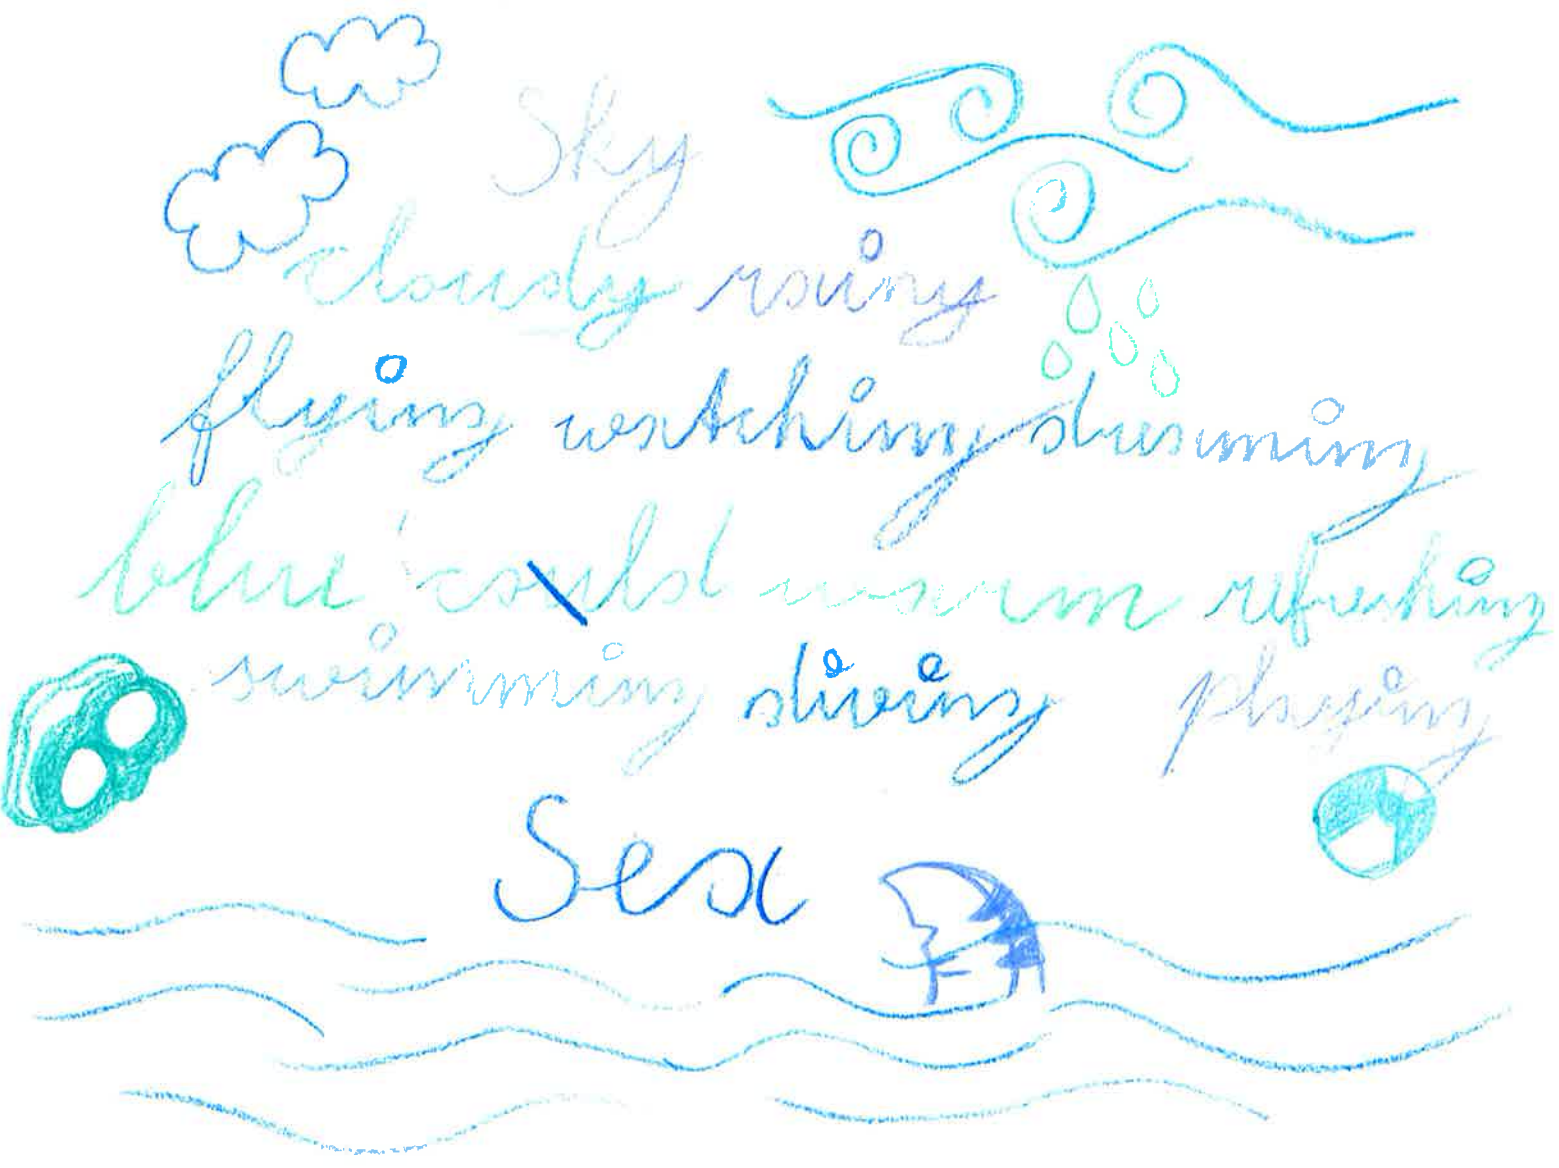 Sky
cloudy rainy
flying watching dreaming
blue could warm refreshing
swimming diving playing
Sea